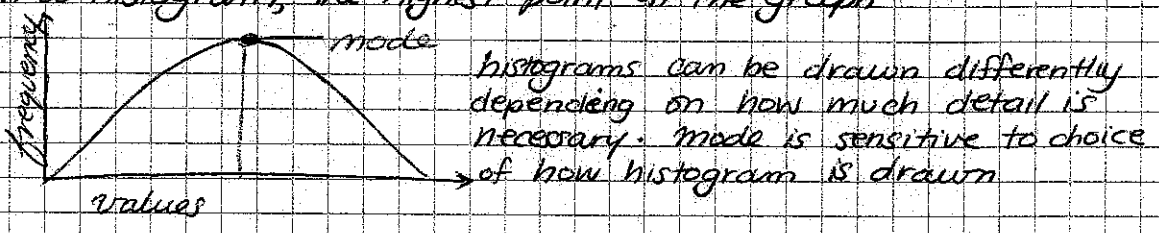 histogram, the highest point of the graph
frequency
mode
histograms can be drawn differently
depending on how much detail is
necessary. mode is sensitive to choice
of how histogram is drawn
values